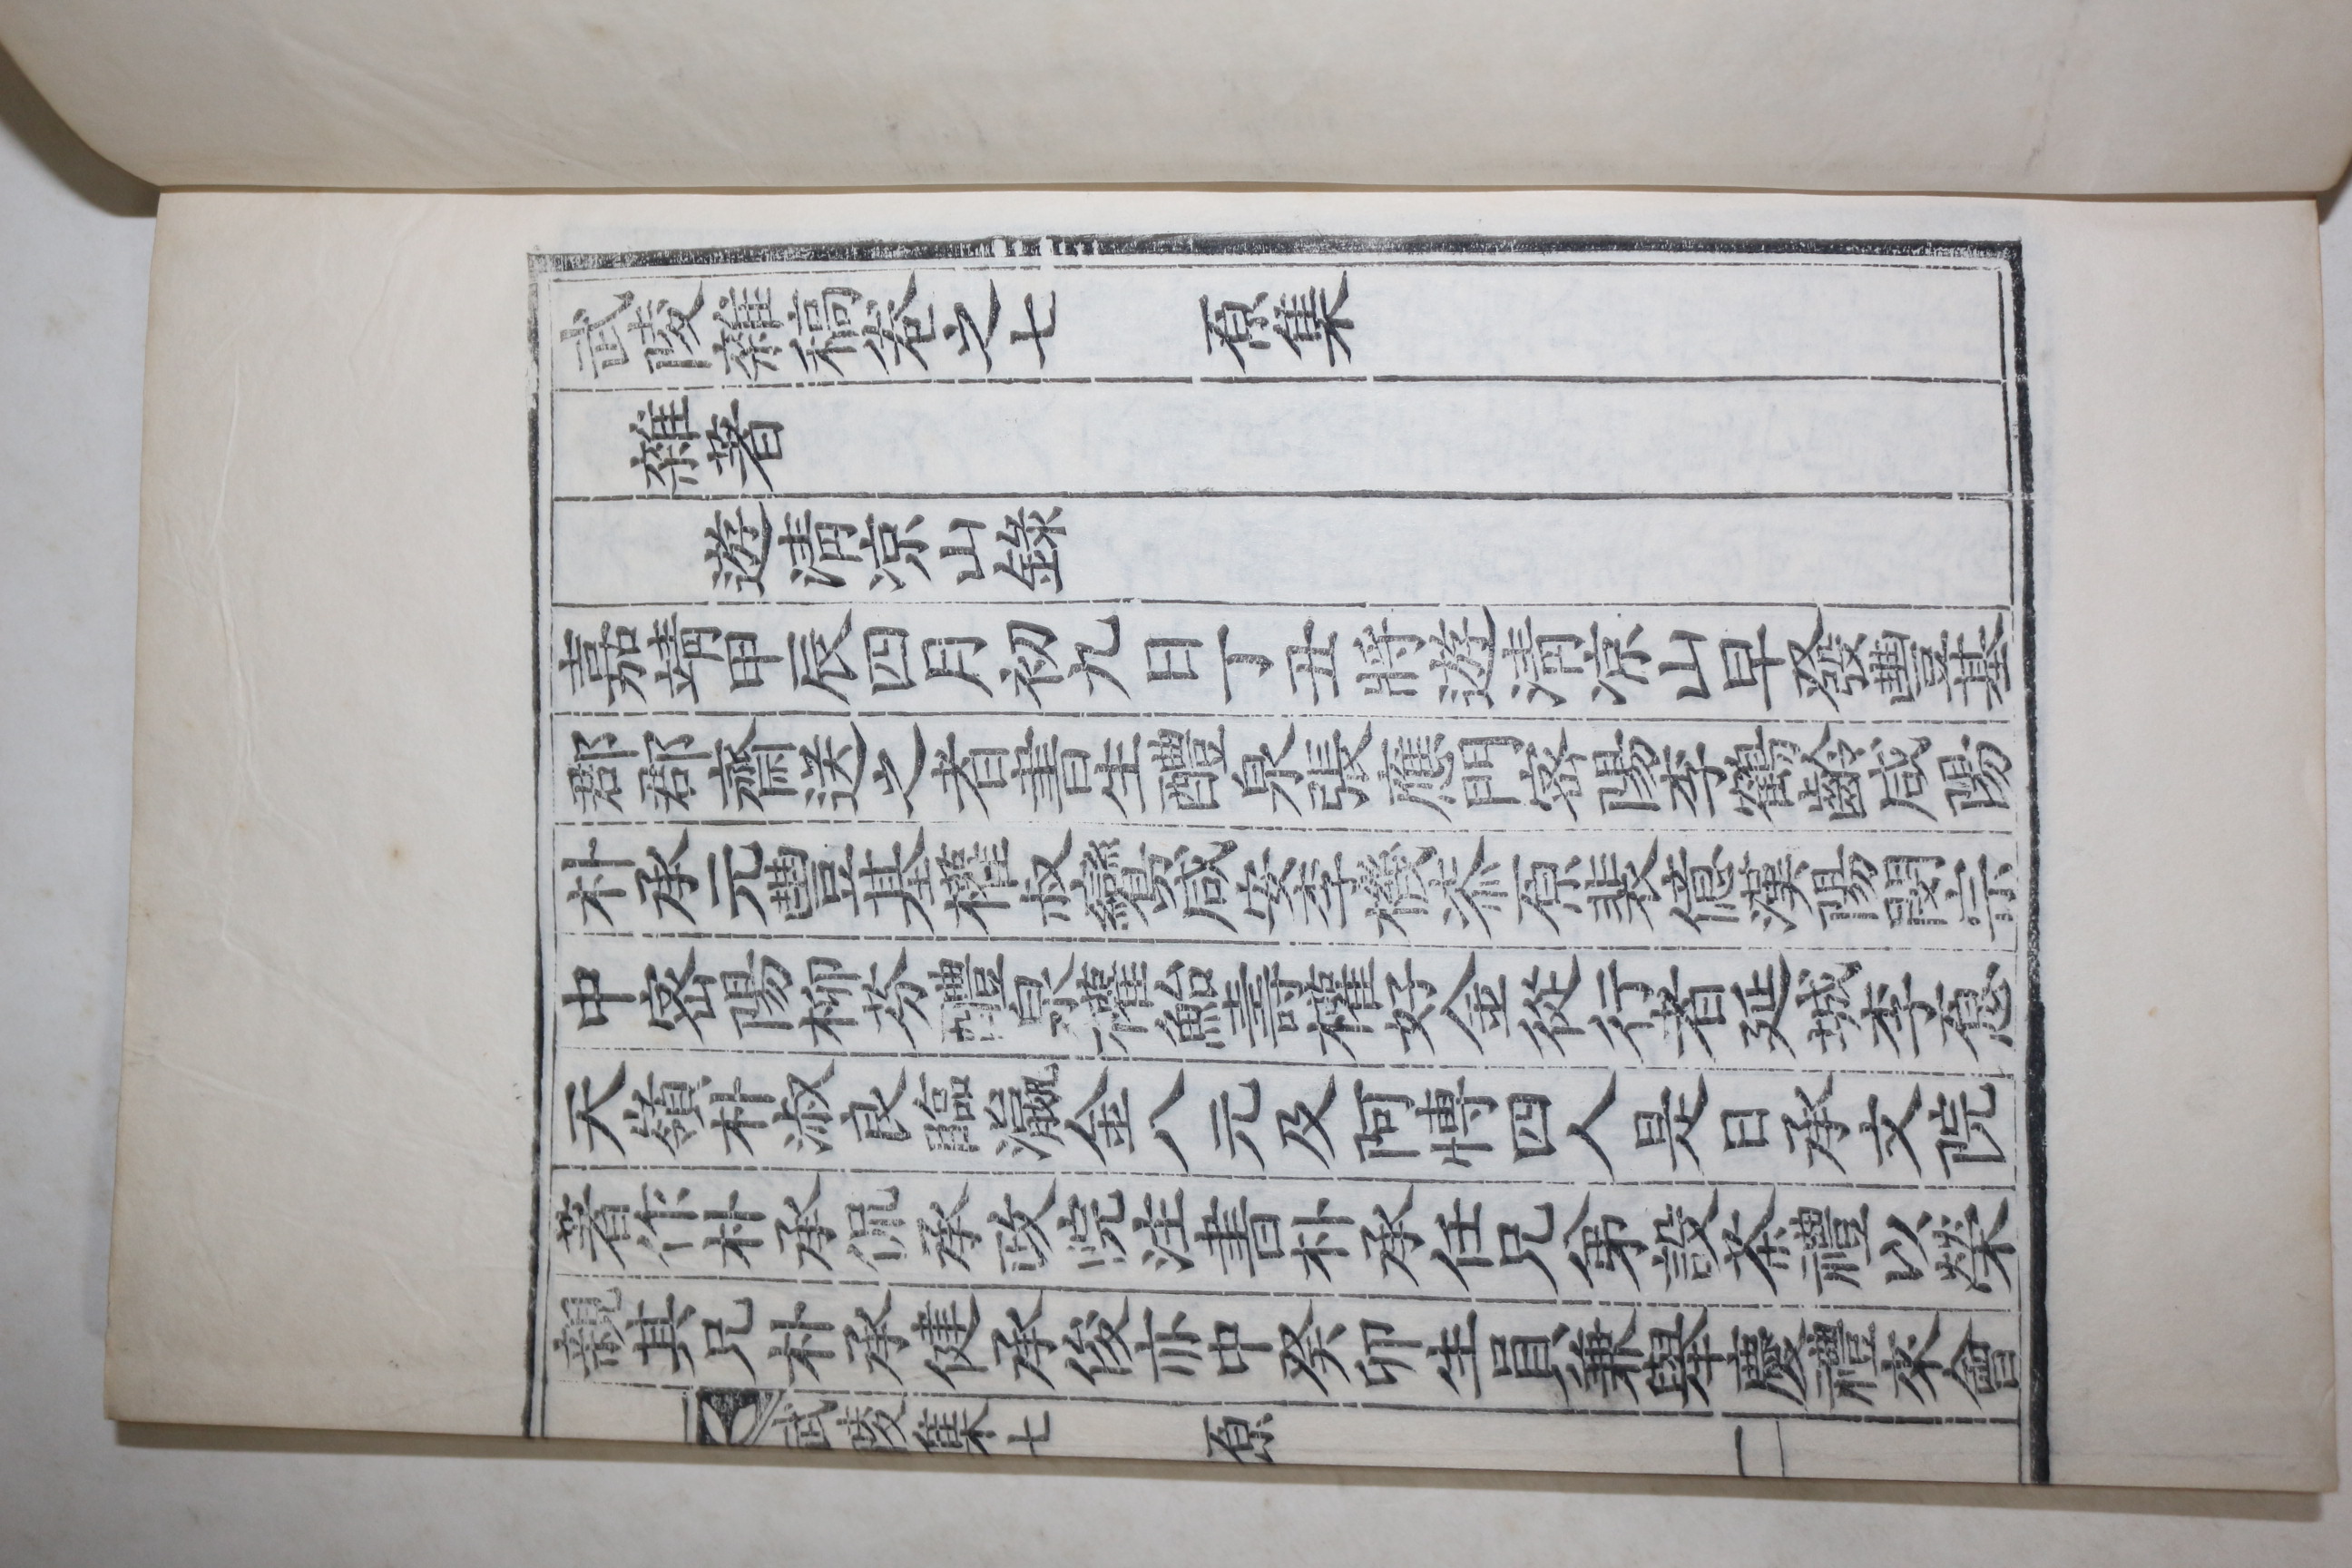 武陵雜稿卷之七 原集
雜著
遊淸凉山錄
嘉靖甲辰四月初九日丁丑將遊淸凉山早發豐基
郡郡齋送之者書生醴泉張應門密陽李鶴齡咸陽
朴承元豐基權叔鸞咸安李機漆原裴億漢陽閔宗
中密陽柳芬醴泉權鮐壽權好金從行者延城李愿
天嶺朴淑良臨瀛金八元及阿慱四人是日承文院
著作朴承侃承政院注書朴承任兄弟設茶禮以榮
親其兄朴承健承俊亦中癸卯生員兼擧慶禮來會
武陵集七 原 一